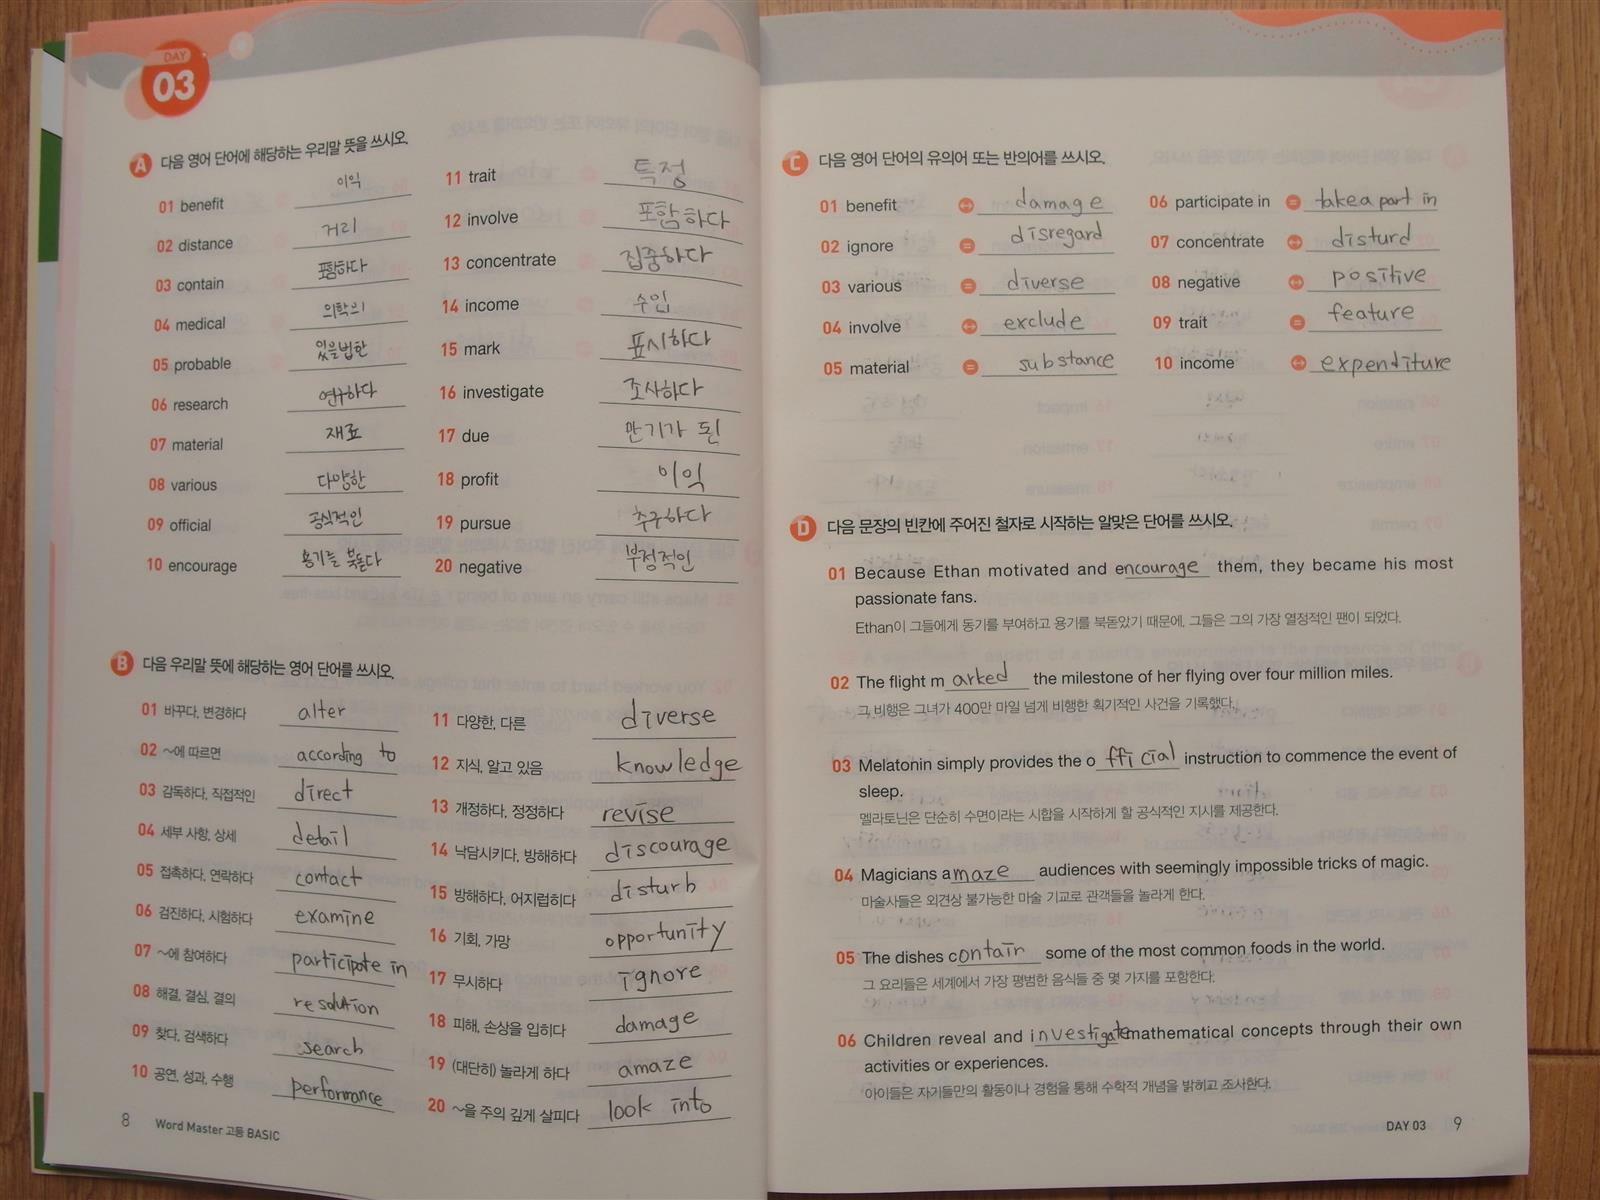 DAY
03
A 다음 영어 단어에 해당하는 우리말 뜻을 쓰시오.
01 benefit 이익
02 distance 거리
03 contain 포함하다
04 medical 의학의
05 probable 있을법한
06 research 연구하다
07 material 재료
08 various 다양한
09 official 공식적인
10 encourage 용기를 북돋다
11 trait 특정
12 involve 포함하다
13 concentrate 집중하다
14 income 수입
15 mark 표시하다
16 investigate 조사하다
17 due 만기가 된
18 profit 이익
19 pursue 추구하다
20 negative 부정적인
B 다음 우리말 뜻에 해당하는 영어 단어를 쓰시오.
01 바꾸다, 변경하다 alter
02 ~에 따르면 according to
03 감독하다, 직접적인 direct
04 세부 사항, 상세 detail
05 접촉하다, 연락하다 contact
06 검진하다, 시험하다 examine
07 ~에 참여하다 participate in
08 해결, 결심, 결의 resolution
09 찾다, 검색하다 search
10 공연, 성과, 수행 performance
11 다양한, 다른 diverse
12 지식, 알고 있음 knowledge
13 개정하다, 정정하다 revise
14 낙담시키다, 방해하다 discourage
15 방해하다, 어지럽히다 disturb
16 기회, 가망 opportunity
17 무시하다 ignore
18 피해, 손상을 입히다 damage
19 (대단히) 놀라게 하다 amaze
20 ~을 주의 깊게 살피다 look into
8 Word Master 고등 BASIC
C 다음 영어 단어의 유의어 또는 반의어를 쓰시오.
01 benefit ↔ damage
02 ignore = disregard
03 various = diverse
04 involve ↔ exclude
05 material = substance
06 participate in = take a part in
07 concentrate ↔ disturd
08 negative ↔ positive
09 trait = feature
10 income ↔ expenditure
D 다음 문장의 빈칸에 주어진 철자로 시작하는 알맞은 단어를 쓰시오.
01 Because Ethan motivated and encourage them, they became his most
passionate fans.
Ethan이 그들에게 동기를 부여하고 용기를 북돋았기 때문에, 그들은 그의 가장 열정적인 팬이 되었다.
02 The flight marked the milestone of her flying over four million miles.
그 비행은 그녀가 400만 마일 넘게 비행한 획기적인 사건을 기록했다.
03 Melatonin simply provides the official instruction to commence the event of
sleep.
멜라토닌은 단순히 수면이라는 시합을 시작하게 할 공식적인 지시를 제공한다.
04 Magicians amaze audiences with seemingly impossible tricks of magic.
마술사들은 외견상 불가능한 마술 기교로 관객들을 놀라게 한다.
05 The dishes contain some of the most common foods in the world.
그 요리들은 세계에서 가장 평범한 음식들 중 몇 가지를 포함한다.
06 Children reveal and investigate mathematical concepts through their own
activities or experiences.
아이들은 자기들만의 활동이나 경험을 통해 수학적 개념을 밝히고 조사한다.
DAY 03 9